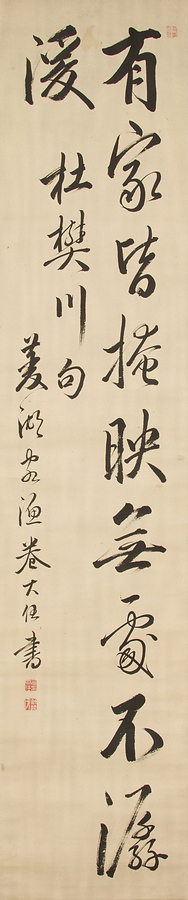 有家皆掩映無處不潺
湲
杜樊川句
菱湖老漁卷大任書